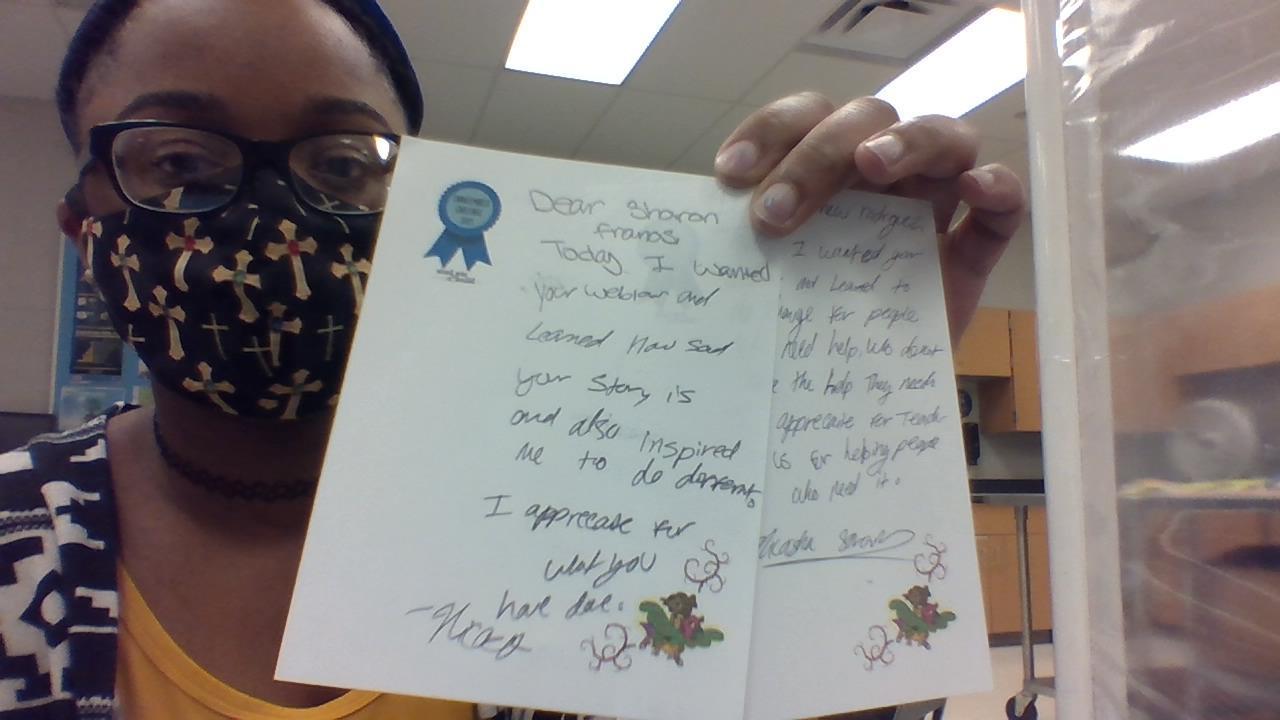 Dear Sharon
franos,
Today I wanted
your webiow and
Learned How sad
your story is
and also inspired
me to do
I apprecase for
what you
have doe.
rodrigues
I wanted your
and Leaned to
for people
need help, who
the help They needs
apprecase for
for helping people
who need it.